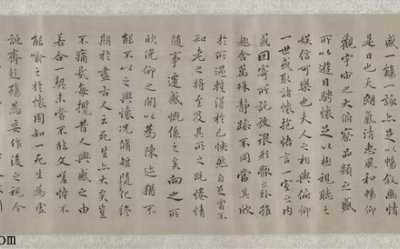 盛一觴一詠亦足以暢敘幽情
是日也天朗氣清惠風和暢仰
觀宇宙之大俯察品類之盛
所以遊目騁懷足以極視聽之
娛信可樂也夫人之相與俯仰
一世或取諸懷抱悟言一室之內
或因寄所託放浪形骸之外雖
趣舍萬殊靜躁不同當其欣
於所遇暫得於己快然自足不
知老之將至及其所之既惓情
隨事遷感慨係之矣向之所
欣俛仰之間以為陳迹猶不
能不以之興懷況脩短隨化終
期於盡古人云死生亦大矣豈
不痛哉每攬昔人興感之由
若合一契未嘗不臨文嗟悼不
能喻之於懷固知一死生為虛
誕齊彭殤為妄作後之視今
om